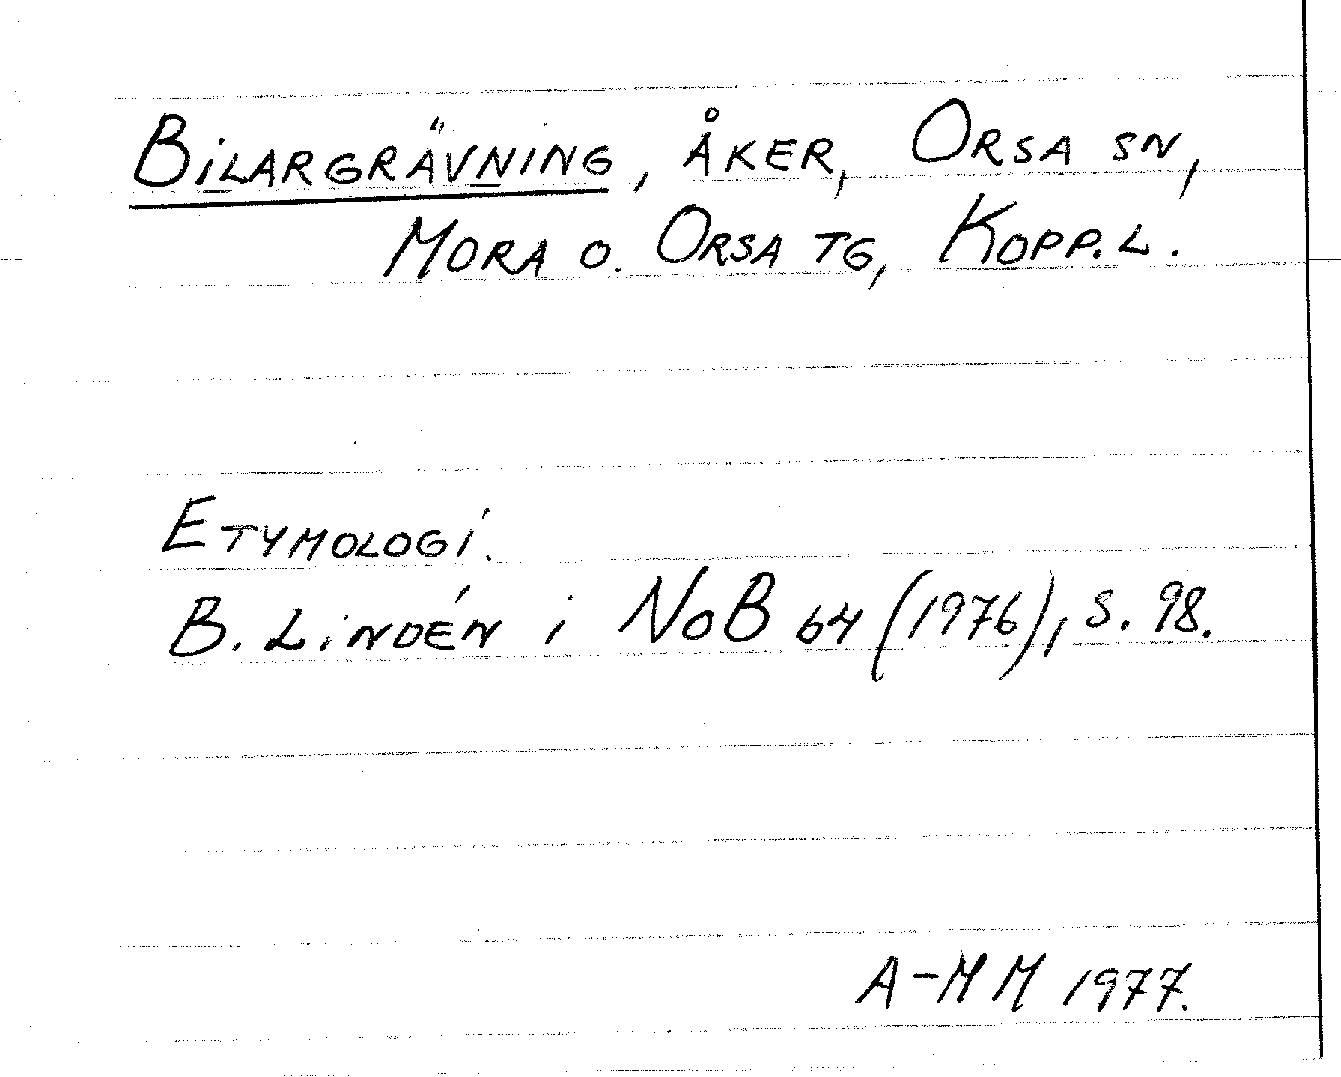 BILARGRÄVNING, ÅKER, ORSA SN,
MORA O. ORSA TG, KOPP. L.
ETYMOLOGI.
B. LINDÉN i NoB 64 (1976), S. 98.
A-MM 1977.